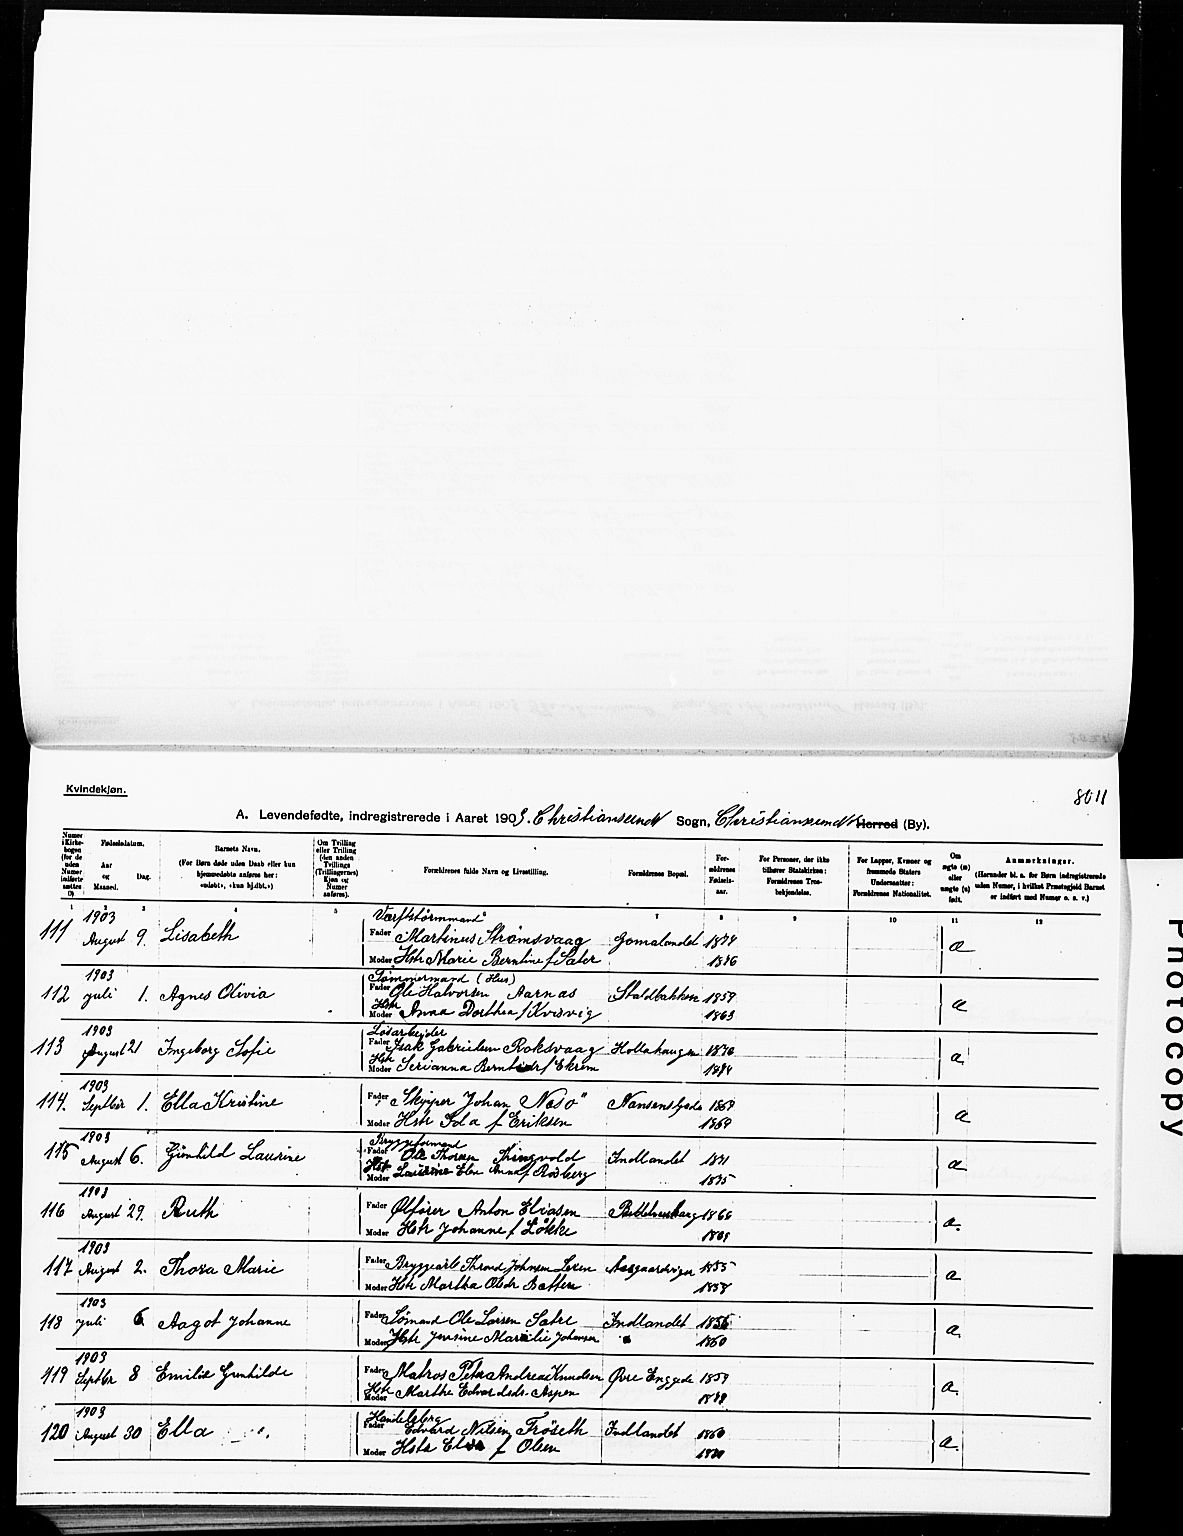 Kvindekjøn.
8011
A. Levendefødte, indregistrerede i Aaret 1903. Christianssund Sogn, Christianssund Herred (By).
Numer i Kirkebogen (for de uden Numer indførte sættes 0)
Fødselsdatum. Aar og Maaned. Dag.
Barnets Navn. (For Børn døde uden Daab eller kun hjemmedøbte anføres her: «udøbt», «kun hj.dbt.»)
Om Tvilling eller Trilling (den anden Tvillings (Trillingernes) Kjøn og Numer anføres).
Forældrenes fulde Navn og Livsstilling.
Forældrenes Bopæl.
Forældrenes Fødselsaar.
For Personer, der ikke tilhører Statskirken: Forældrenes Trosbekjendelse.
For Lapper, Kvæner og fremmede Staters Undersaatter: Forældrenes Nationalitet.
Om ægte (æ) eller uægte (u) født.
Anmærkninger. (Herunder bl. a. for Børn indregistrerede uden Numer, i hvilket Præstegjeld Barnet er indført med Numer o. s. v.)
1 2 3 4 5 7 8 9 10 11 12
1903 Værftstømmmand
111 August 9. Lisabeth Fader Martinus Strømsvaag Gomalandet 1874 æ
Moder Hstr Marie Berntine f Sæter 1876
1903 Tømmermand (Hus)
112 Juli 1. Agnes Olivia Fader Ole Halvorsen Aarnæs Staldbakken 1859 æ
Hstr Moder Anna Dorthea f Kvisvig 1863
1903 Løsarbeider
113 August 21 Ingeborg Sofie Fader Isak Gabrielsen Roksvaag Hollahaugen 1870 æ
Hstr Moder Serianna f Ekrem
1903
114. Septbr 1. Ella Kristine Fader Skipper Johan Næsø Nansenslyade 1869 æ
Moder Hstr Ida f Eriksen 1869
1903 Bryggeformand
115 August 6. Gunhild Laurine Fader Ole Thorsen Thingvold Indlandet 1871 æ
Hstr Moder Laurine Elen Anna f Rosberg 1875
1903
116 August 29. Ruth Fader Ølfører Anton Eliasen 1866 æ.
Moder Hstr Johanne f Løkke
1903
117 August 2. Thora Marie Fader 1855 æ
Moder Hstr Martha Olsdr
1903
118 Juli 6 Aagot Johanne Fader Sømand Ole Larsen Sætre Indlandet æ
Moder Hstr Jensine Johansen " 1860
1903
119 Septbr 8 Emilie Gunhilde Fader Matros Peter Andreas Knudsen Øvre Enggade 1859 æ
Hstr Moder Marthe Edvardsdr. Aspen
1903 Handelsberg
120 August 30 Ella Fader Edvard Nilsen Frøseth Indlandet 1860 æ
Moder Hstr f Olsen
Photocopy